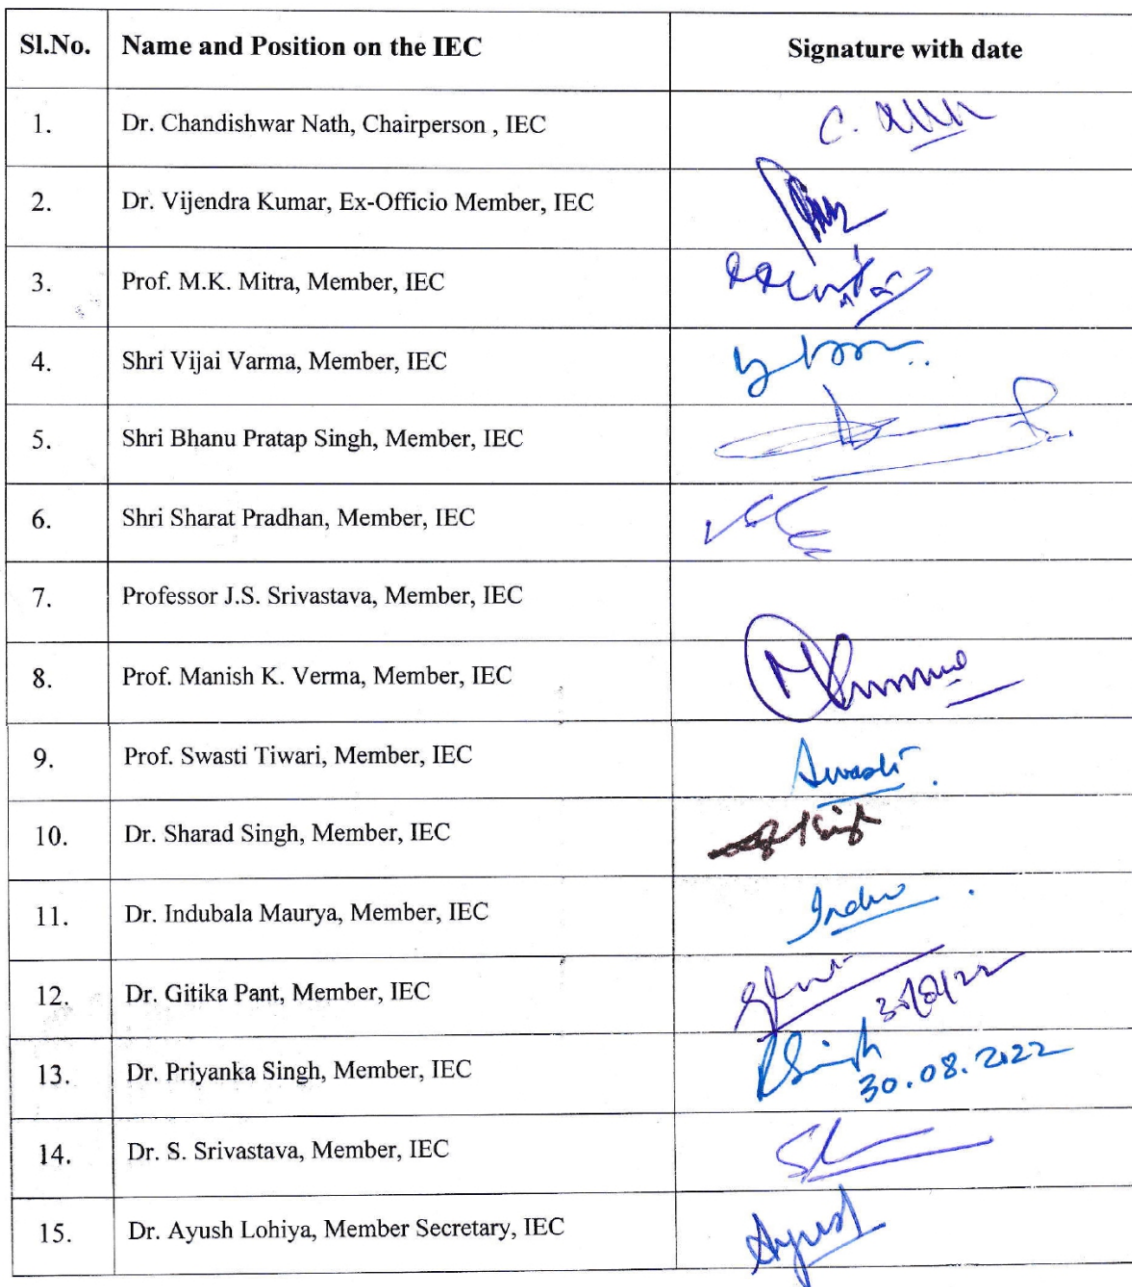 Sl.No. Name and Position on the IEC Signature with date
1. Dr. Chandishwar Nath, Chairperson , IEC
2. Dr. Vijendra Kumar, Ex-Officio Member, IEC
3. Prof. M.K. Mitra, Member, IEC
4. Shri Vijai Varma, Member, IEC
5. Shri Bhanu Pratap Singh, Member, IEC
6. Shri Sharat Pradhan, Member, IEC
7. Professor J.S. Srivastava, Member, IEC
8. Prof. Manish K. Verma, Member, IEC
9. Prof. Swasti Tiwari, Member, IEC Swasti
10. Dr. Sharad Singh, Member, IEC
11. Dr. Indubala Maurya, Member, IEC Indu
12. Dr. Gitika Pant, Member, IEC
30/8/22
13. Dr. Priyanka Singh, Member, IEC PSingh
30.08.2022
14. Dr. S. Srivastava, Member, IEC
15. Dr. Ayush Lohiya, Member Secretary, IEC Ayush